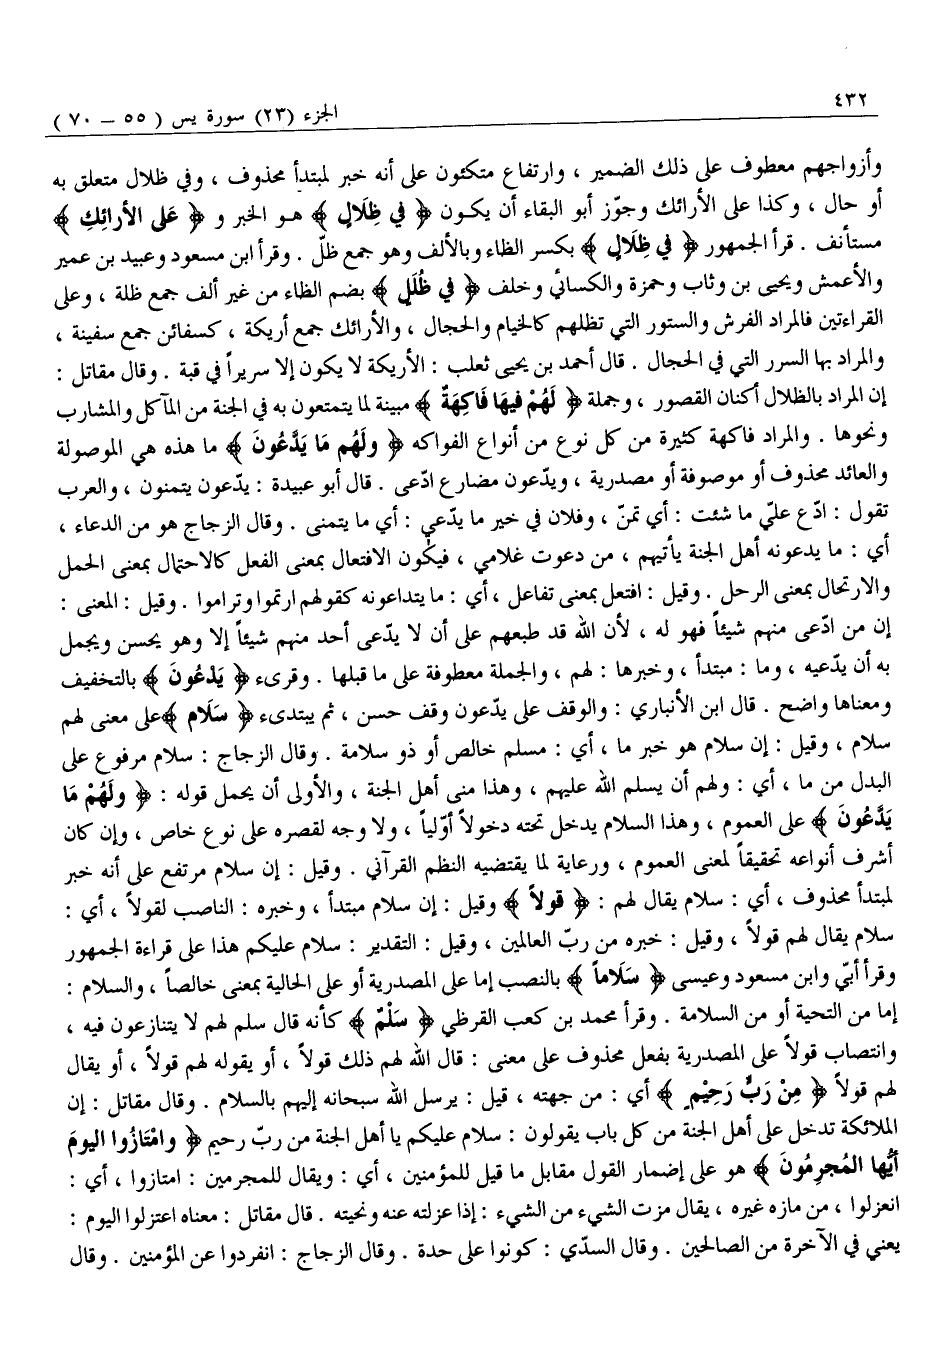 ٤٣٢
الجزء (٢٣) سورة يس ( ٥٥ – ٧٠ )
وأزواجهم معطوف على ذلك الضمير ، وارتفاع متكئون على أنه خبر لمبتدأ محذوف ، وفي ظلال متعلق به
أو حال ، وكذا على الأرائك وجوّز أبو البقاء أن يكون ﴿ في ظِلالٍ ﴾ هو الخبر و ﴿ عَلى الأرائِكِ ﴾
مستأنف . قرأ الجمهور ﴿ في ظِلَالٍ ﴾ بكسر الظاء وبالألف وهو جمع ظلّ . وقرأ ابن مسعود وعبيد بن عمير
والأعمش ويحيى بن وثاب وحمزة والكسائي وخلف ﴿ في ظُلَلٍ ﴾ بضم الظاء من غير ألف جمع ظلة ، وعلى
القراءتين فالمراد الفرش والستور التي تظلهم كالخيام والحجال ، والأرائك جمع أريكة ، كسفائن جمع سفينة ،
والمراد بها السرر التي في الحجال . قال أحمد بن يحيى ثعلب : الأريكة لا يكون إلا سريراً في قبة . وقال مقاتل :
إن المراد بالظلال أكنان القصور ، وجملة ﴿ لَهُمْ فيهَا فَاكِهَةٌ ﴾ مبينة لما يتمتعون به في الجنة من المآكل والمشارب
ونحوها . والمراد فاكهة كثيرة من كل نوع من أنواع الفواكه ﴿ ولَهُم مَا يَدَّعُونَ ﴾ ما هذه هي الموصولة
والعائد محذوف أو موصوفة أو مصدرية ، ويدّعون مضارع ادّعى . قال أبو عبيدة : يدّعون يتمنون ، والعرب
تقول : ادّع عليّ ما شئت : أي تمنّ ، وفلان في خير ما يدّعي : أي ما يتمنى . وقال الزجاج هو من الدعاء ،
أي : ما يدعونه أهل الجنة يأتيهم ، من دعوت غلامي ، فيكون الافتعال بمعنى الفعل كالاحتمال بمعنى الحمل
والارتحال بمعنى الرحل . وقيل : افتعل بمعنى تفاعل ، أي : ما يتداعونه كقولهم ارتموا وتراموا . وقيل : المعنى :
إن من ادّعى منهم شيئاً فهو له ، لأن الله قد طبعهم على أن لا يدّعى أحد منهم شيئاً إلا وهو يحسن ويجمل
به أن يدّعيه ، وما : مبتدأ ، وخبرها : لهم ، والجملة معطوفة على ما قبلها . وقرىء ﴿ يَدْعُونَ ﴾ بالتخفيف
ومعناها واضح . قال ابن الأنباري : والوقف على يدّعون وقف حسن ، ثم يبتدىء ﴿ سَلَام ﴾على معنى لهم
سلام ، وقيل : إن سلام هو خبر ما ، أي : مسلم خالص أو ذو سلامة . وقال الزجاج : سلام مرفوع على
البدل من ما ، أي : ولهم أن يسلم الله عليهم ، وهذا منى أهل الجنة ، والأولى أن يحمل قوله : ﴿ ولَهُمْ مَا
يَدَّعُونَ ﴾ على العموم ، وهذا السلام يدخل تحته دخولاً أوّلياً ، ولا وجه لقصره على نوع خاص ، وإن كان
أشرف أنواعه تحقيقاً لمعنى العموم ، ورعاية لما يقتضيه النظم القرآني . وقيل : إن سلام مرتفع على أنه خبر
لمبتدأ محذوف ، أي : سلام يقال لهم : ﴿ قولاً ﴾ وقيل : إن سلام مبتدأ ، وخبره : الناصب لقولاً ، أي :
سلام يقال لهم قولاً ، وقيل : خبره من ربّ العالمين ، وقيل : التقدير : سلام عليكم هذا على قراءة الجمهور
وقرأ أبيّ وابن مسعود وعيسى ﴿ سَلَاماً ﴾ بالنصب إما على المصدرية أو على الحالية بمعنى خالصاً ، والسلام :
إما من التحية أو من السلامة . وقرأ محمد بن كعب القرظي ﴿ سَلْمٌ ﴾ كأنه قال سلم لهم لا يتنازعون فيه ،
وانتصاب قولاً على المصدرية بفعل محذوف على معنى : قال الله لهم ذلك قولاً ، أو يقوله لهم قولاً ، أو يقال
لهم قولاً ﴿ مِنْ رَبٍّ رَحِيْمٍ ﴾ أي : من جهته ، قيل : يرسل الله سبحانه إليهم بالسلام . وقال مقاتل : إن
الملائكة تدخل على أهل الجنة من كل باب يقولون : سلام عليكم يا أهل الجنة من ربّ رحيم ﴿ وامْتَازُوا اليومَ
أيُّها المُجرِمُونَ ﴾ هو على إضمار القول مقابل ما قيل للمؤمنين ، أي : ويقال للمجرمين : امتازوا ، أي :
انعزلوا ، من مازه غيره ، يقال مزت الشيء من الشيء : إذا عزلته عنه ونحيته . قال مقاتل : معناه اعتزلوا اليوم :
يعني في الآخرة من الصالحين . وقال السدّي : كونوا على حدة . وقال الزجاج : انفردوا عن المؤمنين . وقال